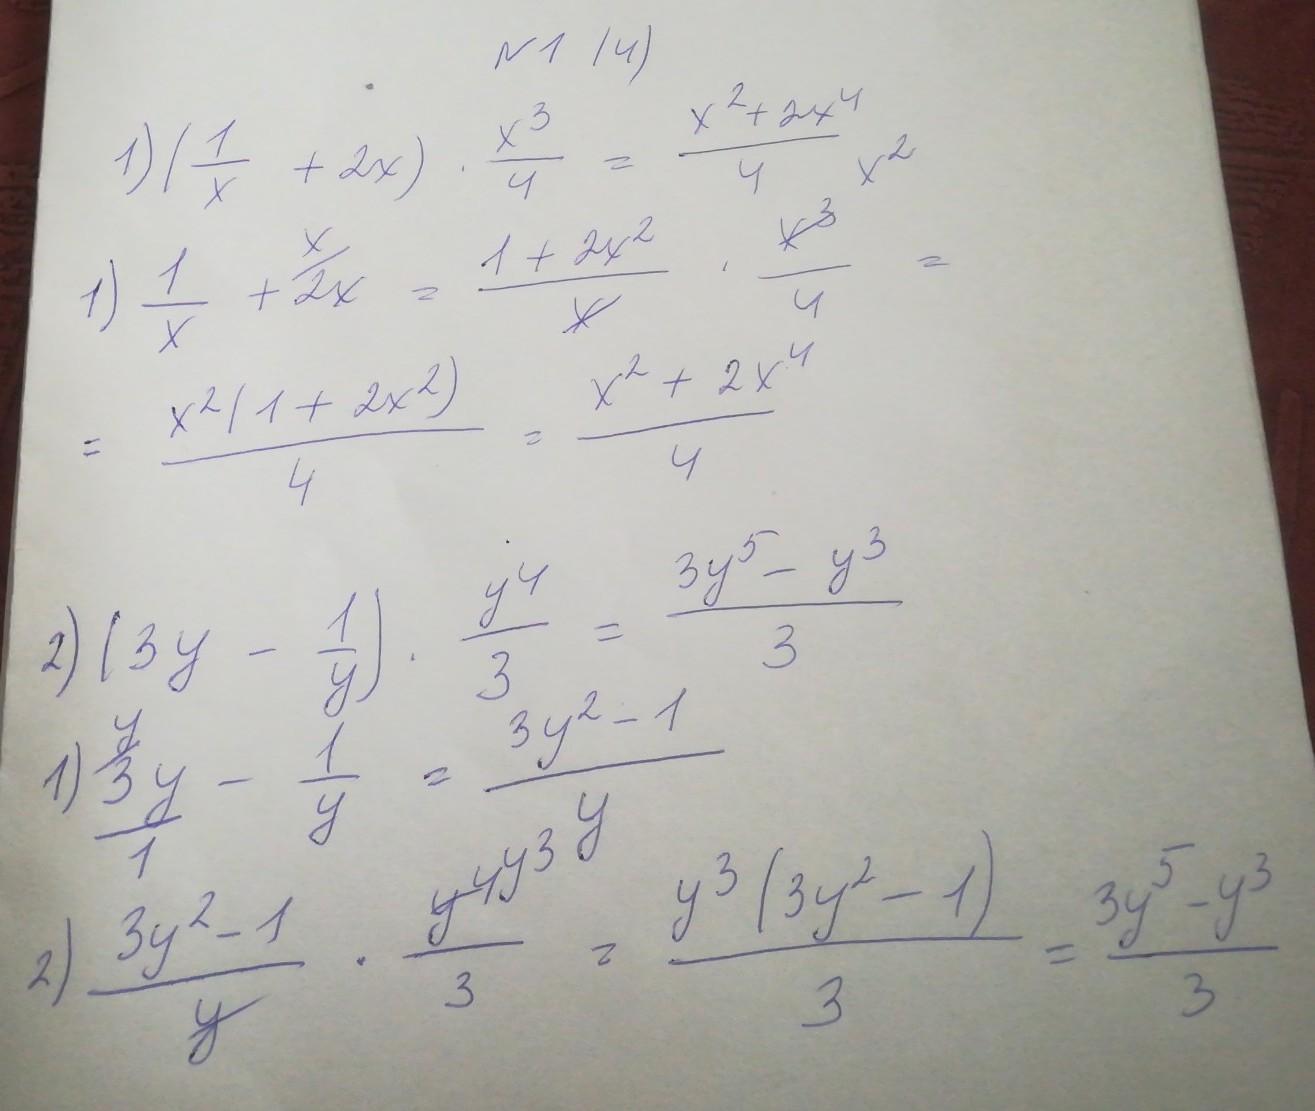 N1 (4)
1) (1/x + 2x) · x³/4 = (x² + 2x⁴)/4
1) 1/x + x/2x = (1 + 2x²)/x · x³/4 x² =
= x²(1 + 2x²)/4 = (x² + 2x⁴)/4
2) (3y - 1/y) · y⁴/3 = (3y⁵ - y³)/3
1) y/3y/1 - 1/y = (3y² - 1)/y
2) (3y² - 1)/y · y⁴ y³/3 = y³(3y² - 1)/3 = (3y⁵ - y³)/3